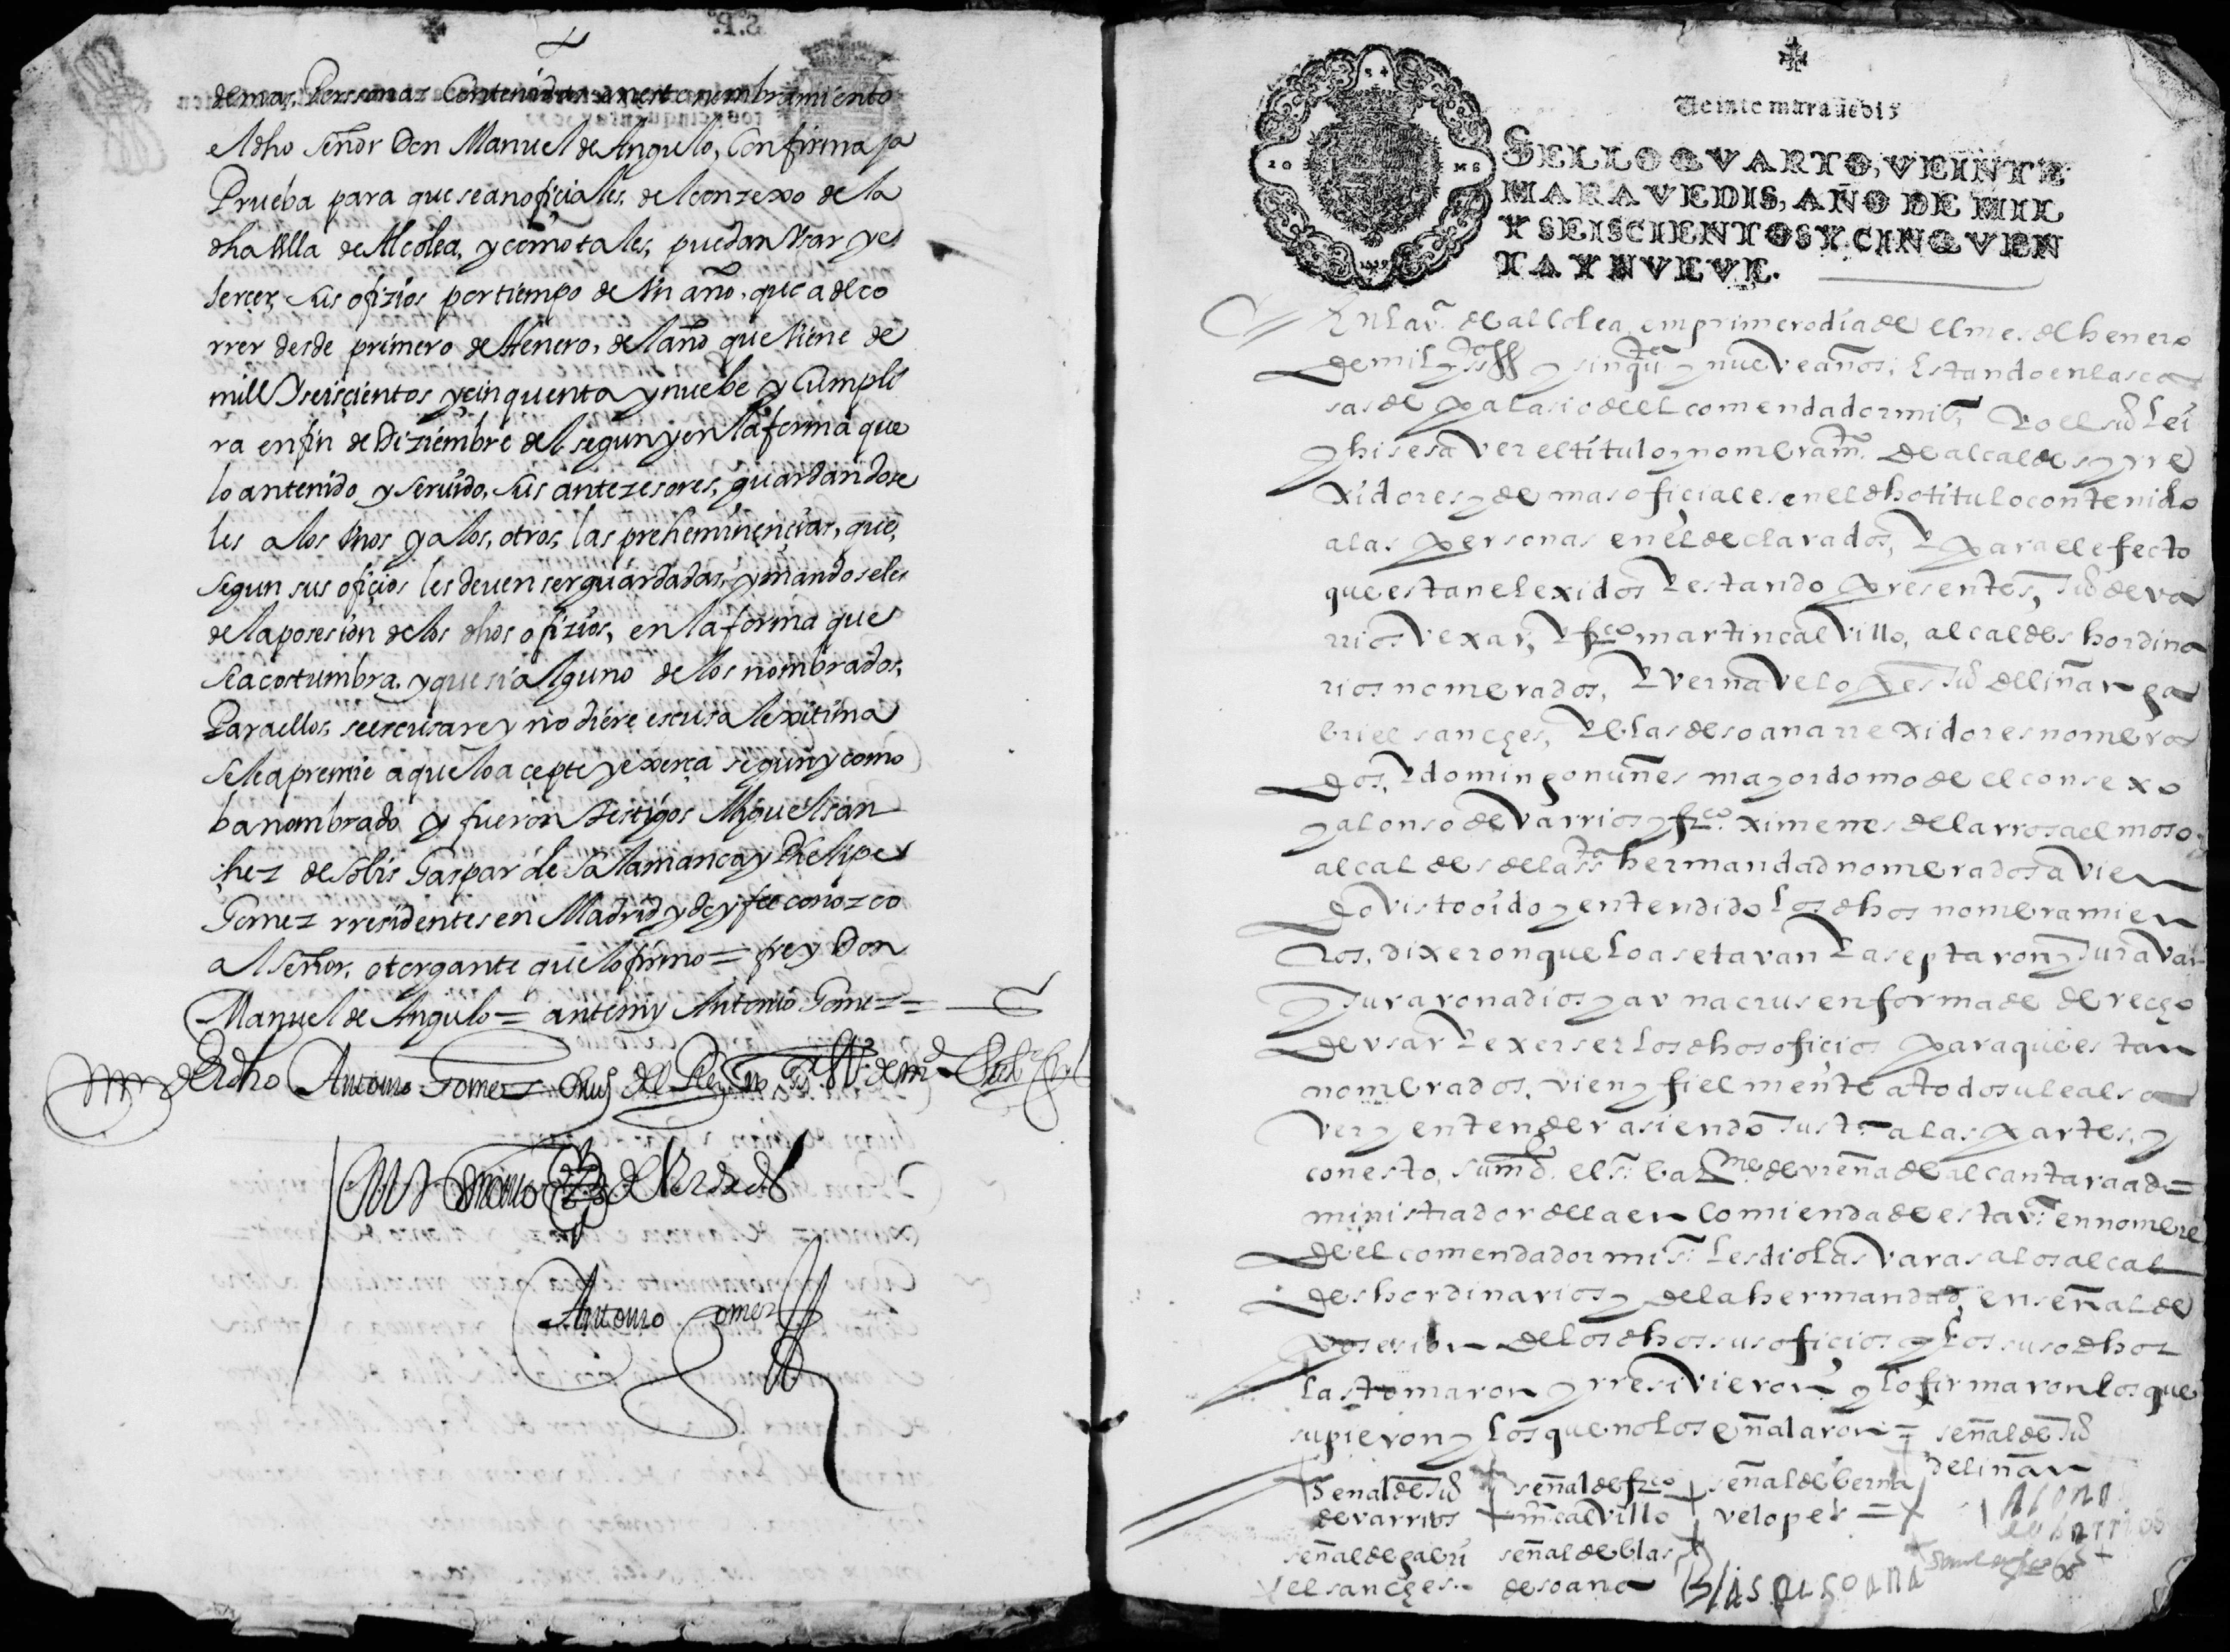 demas Perssonas Contenidas en este nombramiento
el dho señor Don Manuel de Angulo, Confirma ja
Prueba para que sean ofiçiales del conzexo de la
dha Villa de Alcolea, y como tales, puedan Vsar y ex
serçer, sus ofizios por tiempo de Vn año, que a de co
rrer desde primero de Henero, del año que Viene de
mill Y seisçientos y çinquenta y nuebe y Cumpli
ra en fin de Diziembre del segun y en la forma que
lo an tenido y seruido, sus antezesores, guardandose
les a los Vnos y a los, otros, las preheminençias, que,
segun sus ofiçios les deuen ser guardadas, y mando se les
de la posesion de los dhos ofizios, en la forma que
se acostumbra. y que si alguno de los nombrados,
Para ellos, se escusare y no diere escusa lexitima
se le apremie a que lo açepte y exerça segun y como
ba nombrado y fueron testigos Miguel san
chez de Solis Gaspar de Salamanca y Phelipe
Gomez rresidentes en Madrid y doy fee conozco
al señor, otorgante que lo firmo = frey Don
Manuel de Angulo = ante my Antonio Gomez =
El dho Antonio Gomez
de Verdad
Antonio Gomez
Veinte marauedis
SELLO QVARTO, VEINTE
MARAVEDIS, AÑO DE MIL
Y SEISCIENTOS Y CINQVEN
TA Y NVEVE.
En la va. de alcolea em primero dia de el mes de henero
de mil y ss y sinqta y nueve años; Estando en las ca
sas de palasio de el comendador mis, Yo el sno Lei
y hise saver el titulo y nombram.to de alcaldes y rre
xidores y demas oficiales en el dho titulo contenido
a las personas en el declarados, Y para el efecto
que estan elexidos Y estando presentes, Ju de va
rrios vexar, Y frco martin calvillo, alcaldes hordina
rios nombrados, Y vernave lopes Ju de liñan ga
briel sanches, Y blas de soana rrexidores nombra
dos, Y domingo nuñes mayordomo de el consexo
y alonso de varrios y frco ximenes de la rrosa el moso
alcaldes de la sta hermandad nombrados avien
do visto oido y entendido Los dhos nombramien
tos, dixeron que Lo asetavan Y aseptaron y Juravan
y Juraron a dios y a vna crus en forma de derecho
de vsar Y exerser Los dhos oficios para que estan
nombrados, vien y fiel mente a todo su leal sa
ver y entender asiendo Justa. a las partes, y
con esto, su md. el sr. ba me de vreña de alcantara ad=
ministrador de la encomienda de esta va. en nombre
de el comendador mis. Les dio Las varas a los alcal
des hordinarios y de la hermandad, en señal de
posesion de los dhos sus oficios y Los suso dhos
las tomaron y rresivieron, y lo firmaron los que
supieron y Los que no Lo señalaron = señal de Ju
de liñan
señal de Ju señal de frco señal de berna
de varrios mn calvillo ve lopes =
Alonso
de barrios
señal de gabri señal de blas
el sanches de soana Blas de Soana